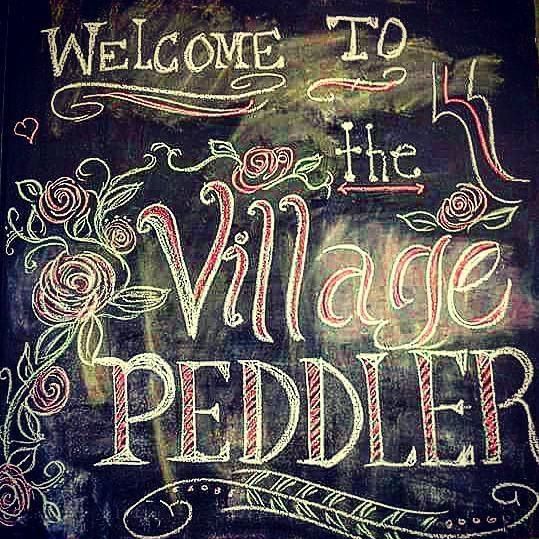 WELCOME TO
the
Village
PEDDLER